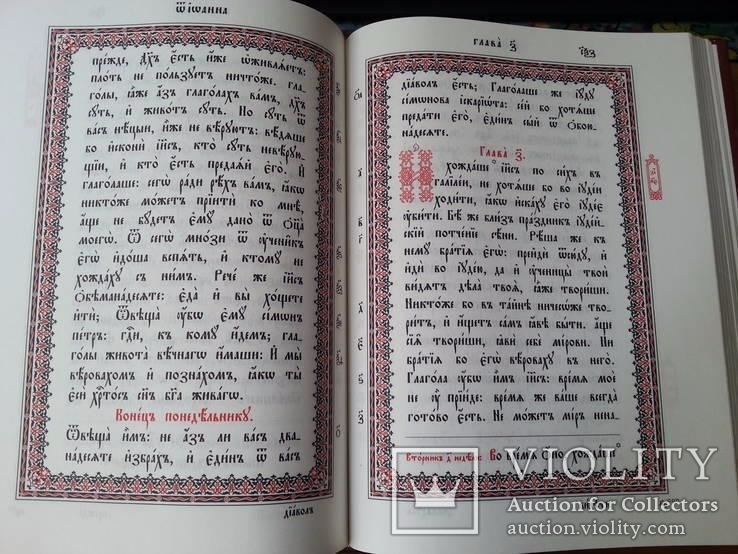 Ѿ іѡанна
пре́жде, дх҃ъ є҆́сть и҆́же ѡ҆живлѧ́етъ:
пло́ть не по́льзꙋетъ ничто́же, гла-
го́лы, ꙗ҆̀же а҆́зъ гл҃ахъ ва́мъ, дх҃ъ
сꙋ́ть, и҆ живо́тъ сꙋ́ть. Но сꙋ́ть ѿ
ва́съ нѣ́цыи, и҆̀же не вѣ́рꙋютъ: вѣ́дѧше
бо и҆сконѝ і҆и҃съ, кто̀ сꙋ́ть невѣ́рꙋю-
щїи, и҆ кто̀ є҆́сть предаѧ́й є҆го̀. И҆
глаго́лаше: сегѡ̀ ра́ди рѣ́хъ ва́мъ, ꙗ҆́кѡ
никто́же мо́жетъ прїитѝ ко мнѣ̀,
а҆́ще не бꙋ́детъ є҆мꙋ̀ дано̀ ѿ ѻ҆ц҃а̀
моегѡ̀. Ѿ сегѡ̀ мно́зи ѿ ᲂу҆чени́къ
є҆гѡ̀ и҆до́ша вспѧ́ть, и҆ ктомꙋ̀ не
хожда́хꙋ съ ни́мъ. Рече́ же і҆и҃съ
ѻ҆бѣмана́десѧте: є҆да̀ и҆ вы̀ хо́щете
и҆тѝ; Ѿвѣща̀ ᲂу҆̀бѡ є҆мꙋ̀ сі́мѡнъ
пе́тръ: гд҇и, къ комꙋ̀ и҆́демъ; гла-
го́лы живота̀ вѣ́чнагѡ и҆́маши: И҆ мы̀
вѣ́ровахомъ и҆ позна́хомъ, ꙗ҆́кѡ ты̀
є҆сѝ хрⷭ҇то́съ сн҃ъ бг҃а жива́гѡ.
Коне́цъ понедѣ́льникꙋ.
Ѿвѣща̀ и҆̀мъ: не а҆́зъ ли ва́съ два-
на́десѧте и҆збра́хъ, и҆ є҆ди́нъ ѿ ва́съ
дїа́волъ
Глава̀ з҃
дїа́волъ є҆́сть; Глаго́лаше же і҆ꙋ́дꙋ
сі́мѡнова і҆скарїѡ́та: се́й бо хотѧ́ше
преда́ти є҆го̀, є҆ди́нъ сы́й ѿ ѻ҆бою-
на́десѧте.
Глава̀ з҃.
И҆ хожда́ше і҆и҃съ по си́хъ въ
галїле́и, не хотѧ́ше бо во і҆ꙋде́и
ходи́ти, ꙗ҆́кѡ и҆ска́хꙋ є҆го̀ і҆ꙋде́є
ᲂу҆би́ти. Бѣ́ же бли́з̾ пра́здникъ і҆ꙋде́й-
скїй потче́нїе сѣ́ни. Рѣ́ша же къ
немꙋ̀ бра́тїѧ є҆гѡ̀: прейдѝ ѿсю́дꙋ, и҆
и҆дѝ во і҆ꙋде́ю, да и҆ ᲂу҆чн҃цы̀ твоѝ
ви́дѧтъ дѣла̀ твоѧ̑, ꙗ҆̀же твори́ши.
Никто́же бо въ та́йнѣ ничесо́же тво-
ри́тъ, и҆ и҆́щетъ са́мъ ꙗ҆́вѣ бы́ти. а҆́ще
сїѧ̑ твори́ши, ꙗ҆вѝ себѐ мі́рови. Ни
бра́тїѧ бо є҆гѡ̀ вѣ́ровахꙋ въ него̀.
Глаго́ла ᲂу҆̀бо и҆̀мъ і҆и҃съ: вре́мѧ моѐ
не ᲂу҆̀ прїи́де: вре́мѧ же ва́ше всегда̀
гото́во є҆́сть. Не мо́жетъ мі́ръ нена-
Вторник д҃ недѣли: Во вре́мѧ ѻ҆́но хожда́ше
VIOLITY
Auction for Collectors
auction.violity.com